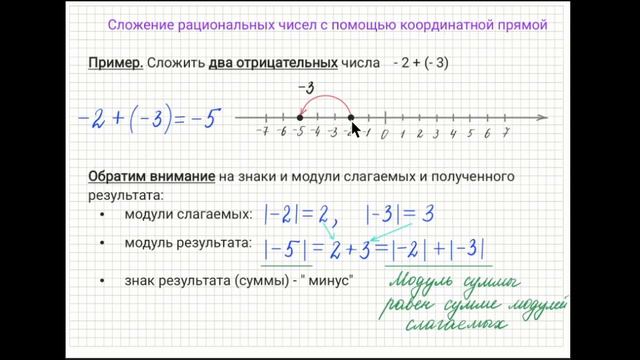 Сложение рациональных чисел с помощью координатной прямой
Пример. Сложить два отрицательных числа - 2 + (- 3)
-3
-2 + (-3) = -5
-7 -6 -5 -4 -3 -2 -1 0 1 2 3 4 5 6 7
Обратим внимание на знаки и модули слагаемых и полученного
результата:
• модули слагаемых: |-2| = 2, |-3| = 3
• модуль результата: |-5| = 2 + 3 = |-2| + |-3|
• знак результата (суммы) - " минус"
Модуль суммы
равен сумме модулей
слагаемых